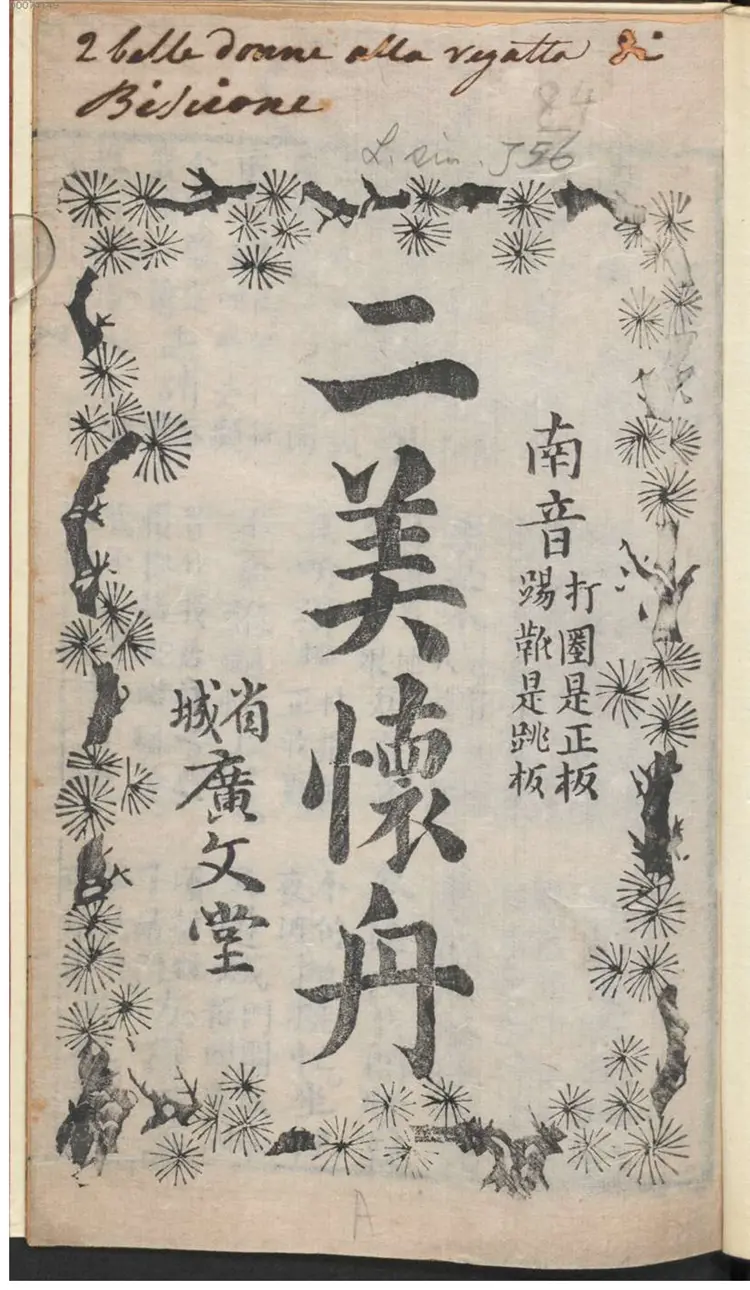 2 belle donne alla regatta di
Biscione
84
L. sin. J 56
南音
打圈是正板
踢靴是跳板
二美懷舟
省城
廣文堂
A